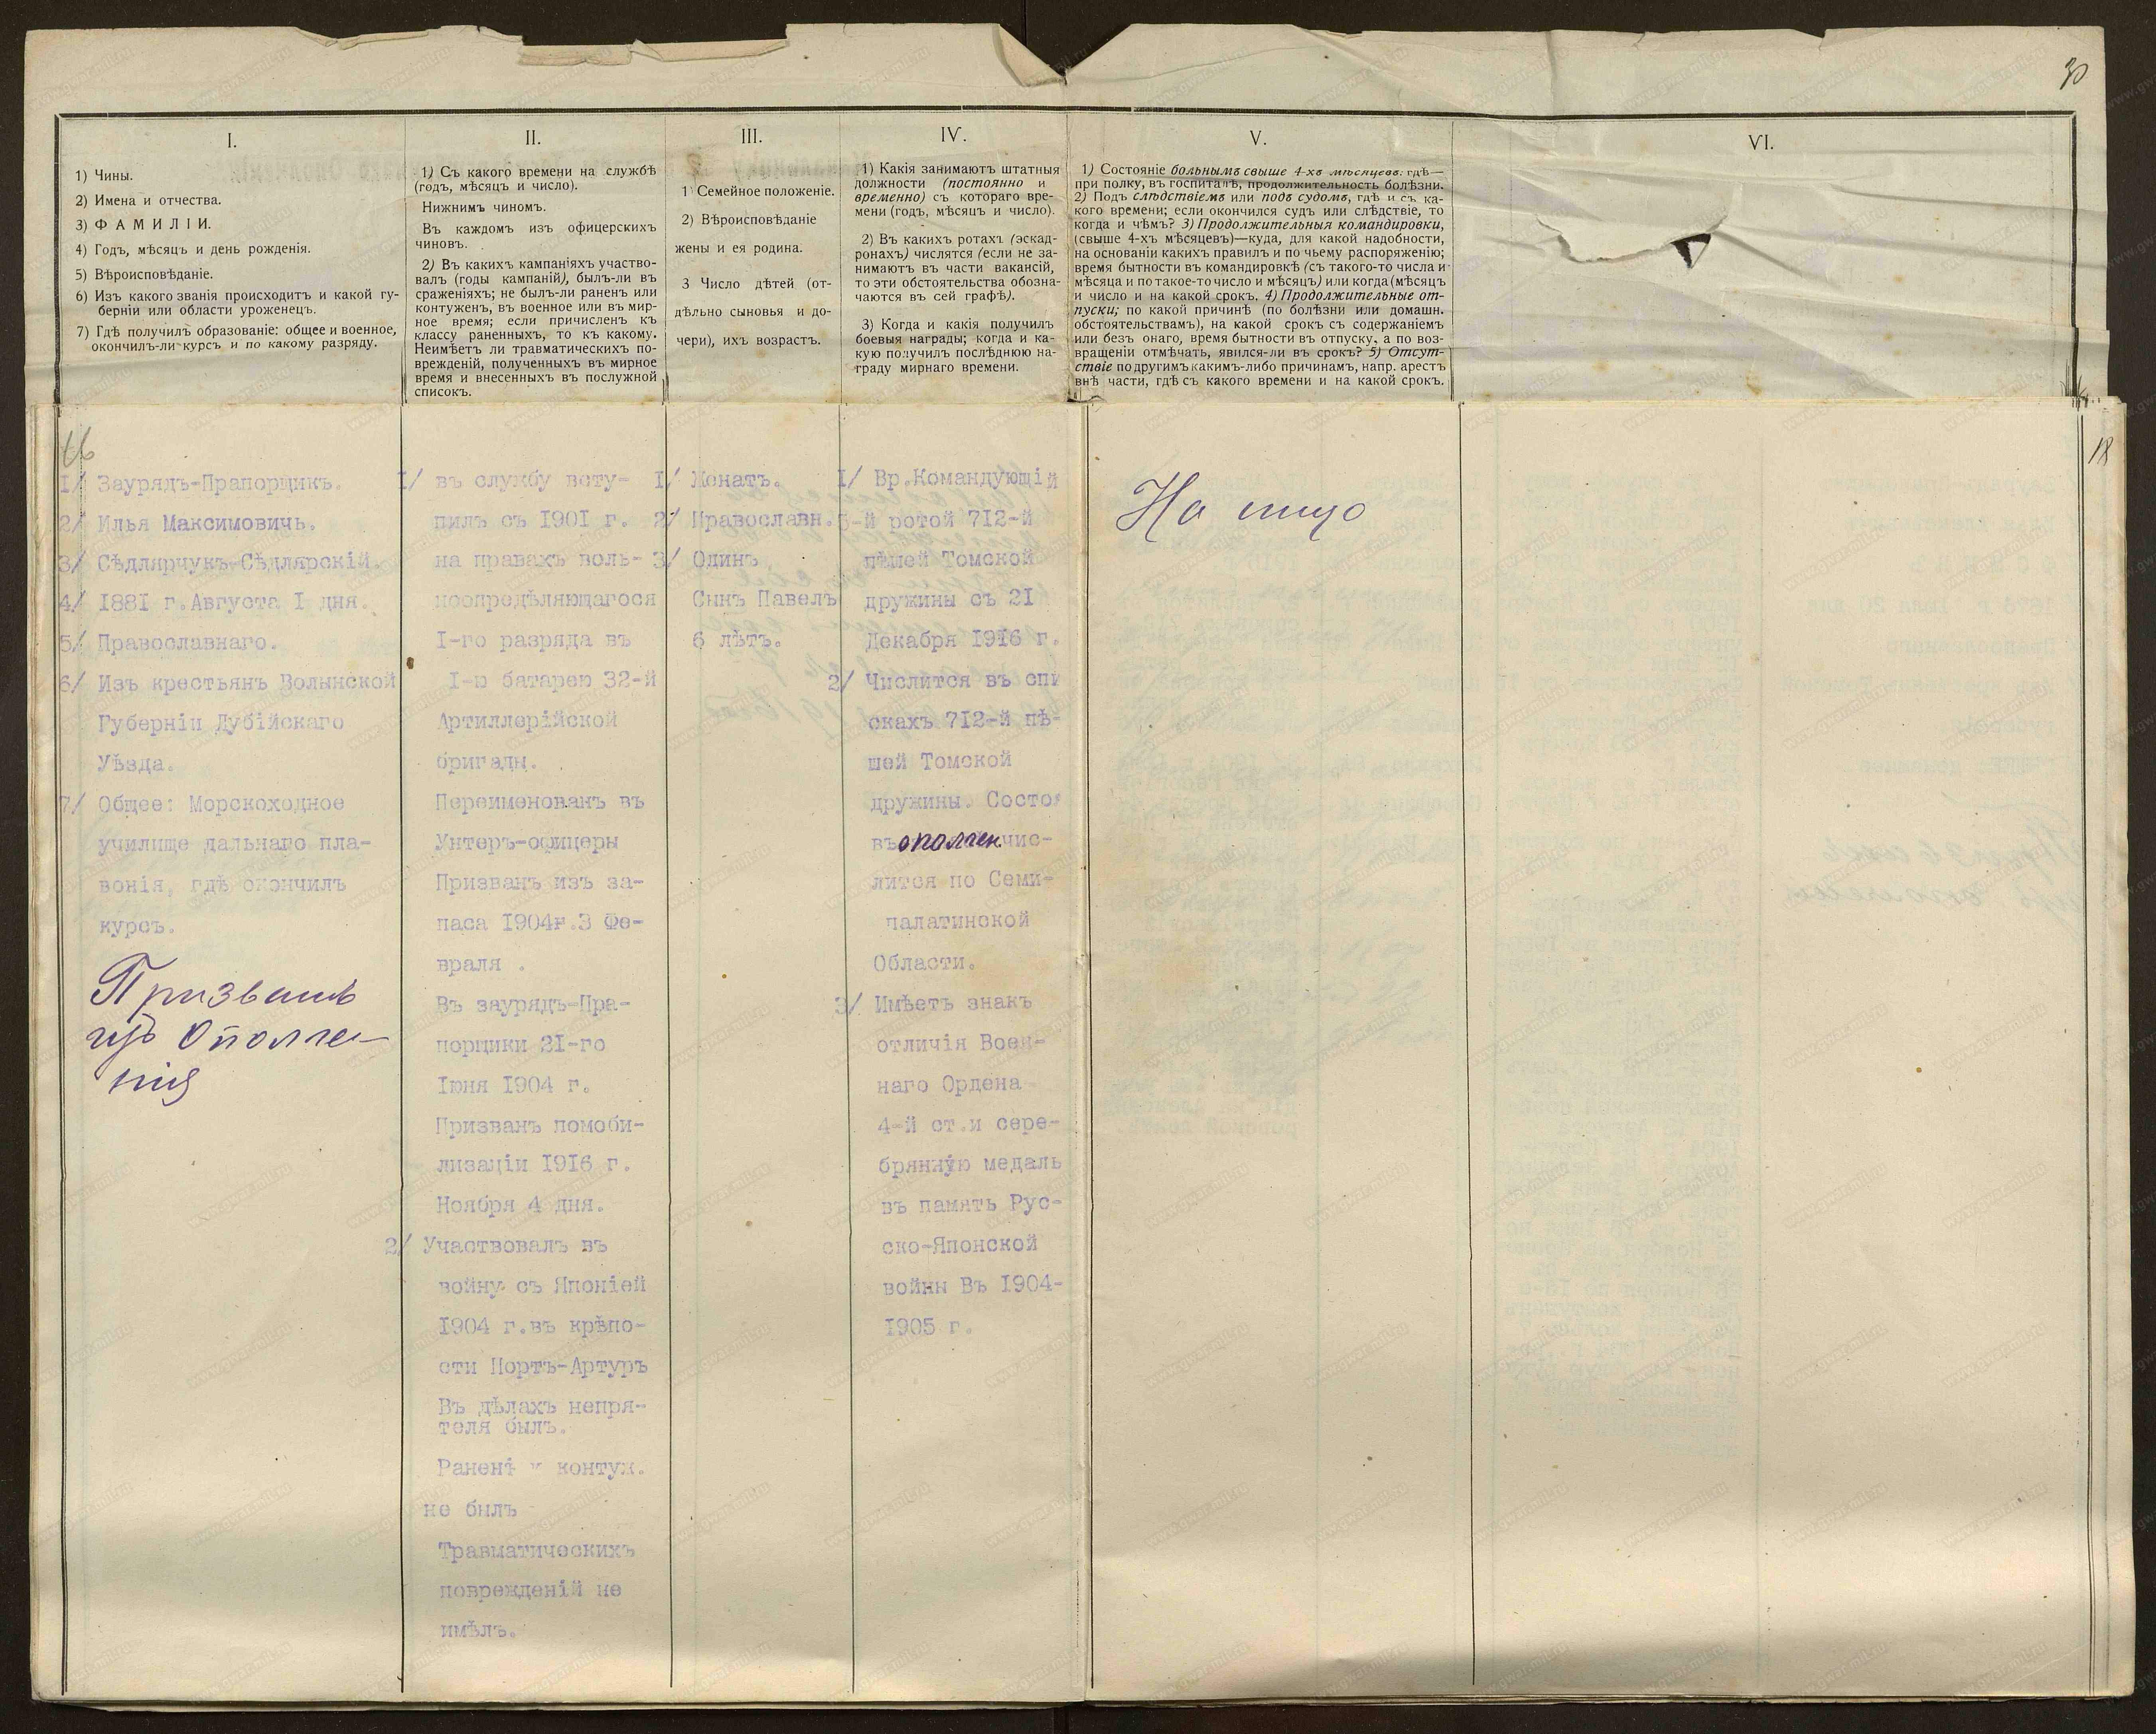 30
I.
1) Чины.
2) Имена и отчества.
3) ФАМИЛІИ.
4) Годъ, мѣсяцъ и день рожденія.
5) Вѣроисповѣданіе.
6) Изъ какого званія происходитъ и какой гу-
берніи или области уроженецъ.
7) Гдѣ получилъ образованіе: общее и военное,
окончилъ-ли курсъ и по какому разряду.
II.
1) Съ какого времени на службѣ
(годъ, мѣсяцъ и число).
Нижнимъ чиномъ.
Въ каждомъ изъ офицерскихъ
чиновъ.
2) Въ какихъ кампаніяхъ участво-
валъ (годы кампаній), былъ-ли въ
сраженіяхъ; не былъ-ли раненъ или
контуженъ, въ военное или въ мир-
ное время; если причисленъ къ
классу раненныхъ, то къ какому.
Неимѣетъ ли травматическихъ по-
врежденій, полученныхъ въ мирное
время и внесенныхъ въ послужной
списокъ.
III.
1) Семейное положеніе.
2) Вѣроисповѣданіе
жены и ея родина.
3 Число дѣтей (от-
дѣльно сыновья и до-
чери), ихъ возрастъ.
IV.
1) Какія занимаютъ штатныя
должности (постоянно и
временно) съ котораго вре-
мени (годъ, мѣсяцъ и число).
2) Въ какихъ ротахъ (эскад-
ронахъ) числятся (если не за-
нимаютъ въ части вакансій,
то эти обстоятельства обозна-
чаются въ сей графѣ).
3) Когда и какія получилъ
боевыя награды; когда и ка-
кую получилъ послѣднюю на-
граду мирнаго времени.
V.
1) Состояніе больнымъ свыше 4-хъ мѣсяцевъ: гдѣ—
при полку, въ госпиталѣ, продолжительность болѣзни.
2) Подъ слѣдствіемъ или подъ судомъ, гдѣ и съ ка-
кого времени; если окончился судъ или слѣдствіе, то
когда и чѣмъ? 3) Продолжительныя командировки,
(свыше 4-хъ мѣсяцевъ)—куда, для какой надобности,
на основаніи какихъ правилъ и по чьему распоряженію;
время бытности въ командировкѣ (съ такого-то числа и
мѣсяца и по такое-то число и мѣсяцъ) или когда (мѣсяцъ
и число и на какой срокъ. 4) Продолжительные от-
пуски; по какой причинѣ (по болѣзни или домашн.
обстоятельствамъ), на какой срокъ съ содержаніемъ
или безъ онаго, время бытности въ отпуску, а по воз-
вращеніи отмѣчать, явился-ли въ срокъ? 5) Отсут-
ствіе по другимъ какимъ-либо причинамъ, напр. арестъ
внѣ части, гдѣ съ какого времени и на какой срокъ.
VI.
18
1/ Заурядъ-Прапорщикъ.
2/ Илья Максимовичъ.
3/ Сѣдлярчукъ-Сѣдлярскій.
4/ 1881 г.Августа I дня.
5/ Православнаго.
6/ Изъ крестьянъ Волынской
Губерніи Дубійскаго
Уѣзда.
7/ Общее: Морскоходное
училище дальнаго пла-
вонія, гдѣ окончилъ
курсъ.
Призванъ
изъ Ополче-
нія
I/ въ службу всту-
пилъ съ 1901 г.
на правахъ воль-
ноопредѣляющагося
I-го разряда въ
I-ю батарею 32-й
Артиллерійской
бригады.
Переименованъ въ
Унтеръ-офицеры
Призванъ изъ за-
паса 1904г.3 Фе-
враля .
Въ заурядъ-Пра-
порщики 21-го
Іюня 1904 г.
Призванъ помоби-
лизаціи 1916 г.
Ноября 4 дня.
2/ Участвовалъ въ
войну съ Японіей
1904 г.въ крѣпо-
сти Портъ-Артуръ
Въ дѣлахъ непря-
теля былъ.
Раненъ и контуж.
не былъ
Травматическихъ
поврежденій не
имѣлъ.
I/ Женатъ.
2/ Православн.
3/ Одинъ
Сынъ Павелъ
6 лѣтъ.
I/ Вр.Командующій
5-й ротой 712-й
пѣшей Томской
дружины съ 21
Декабря 1916 г.
2/ Числится въ спи
скахъ 712-й пѣ-
шей Томской
дружины. Состоя
въ ополчен. чис-
лится по Семи-
палатинской
Области.
3/ Имѣетъ знакъ
отличія Воен-
наго Ордена
4-й ст.и сере-
брянную медаль
въ память Рус-
ско-Японской
войны Въ 1904-
1905 г.
На лицо